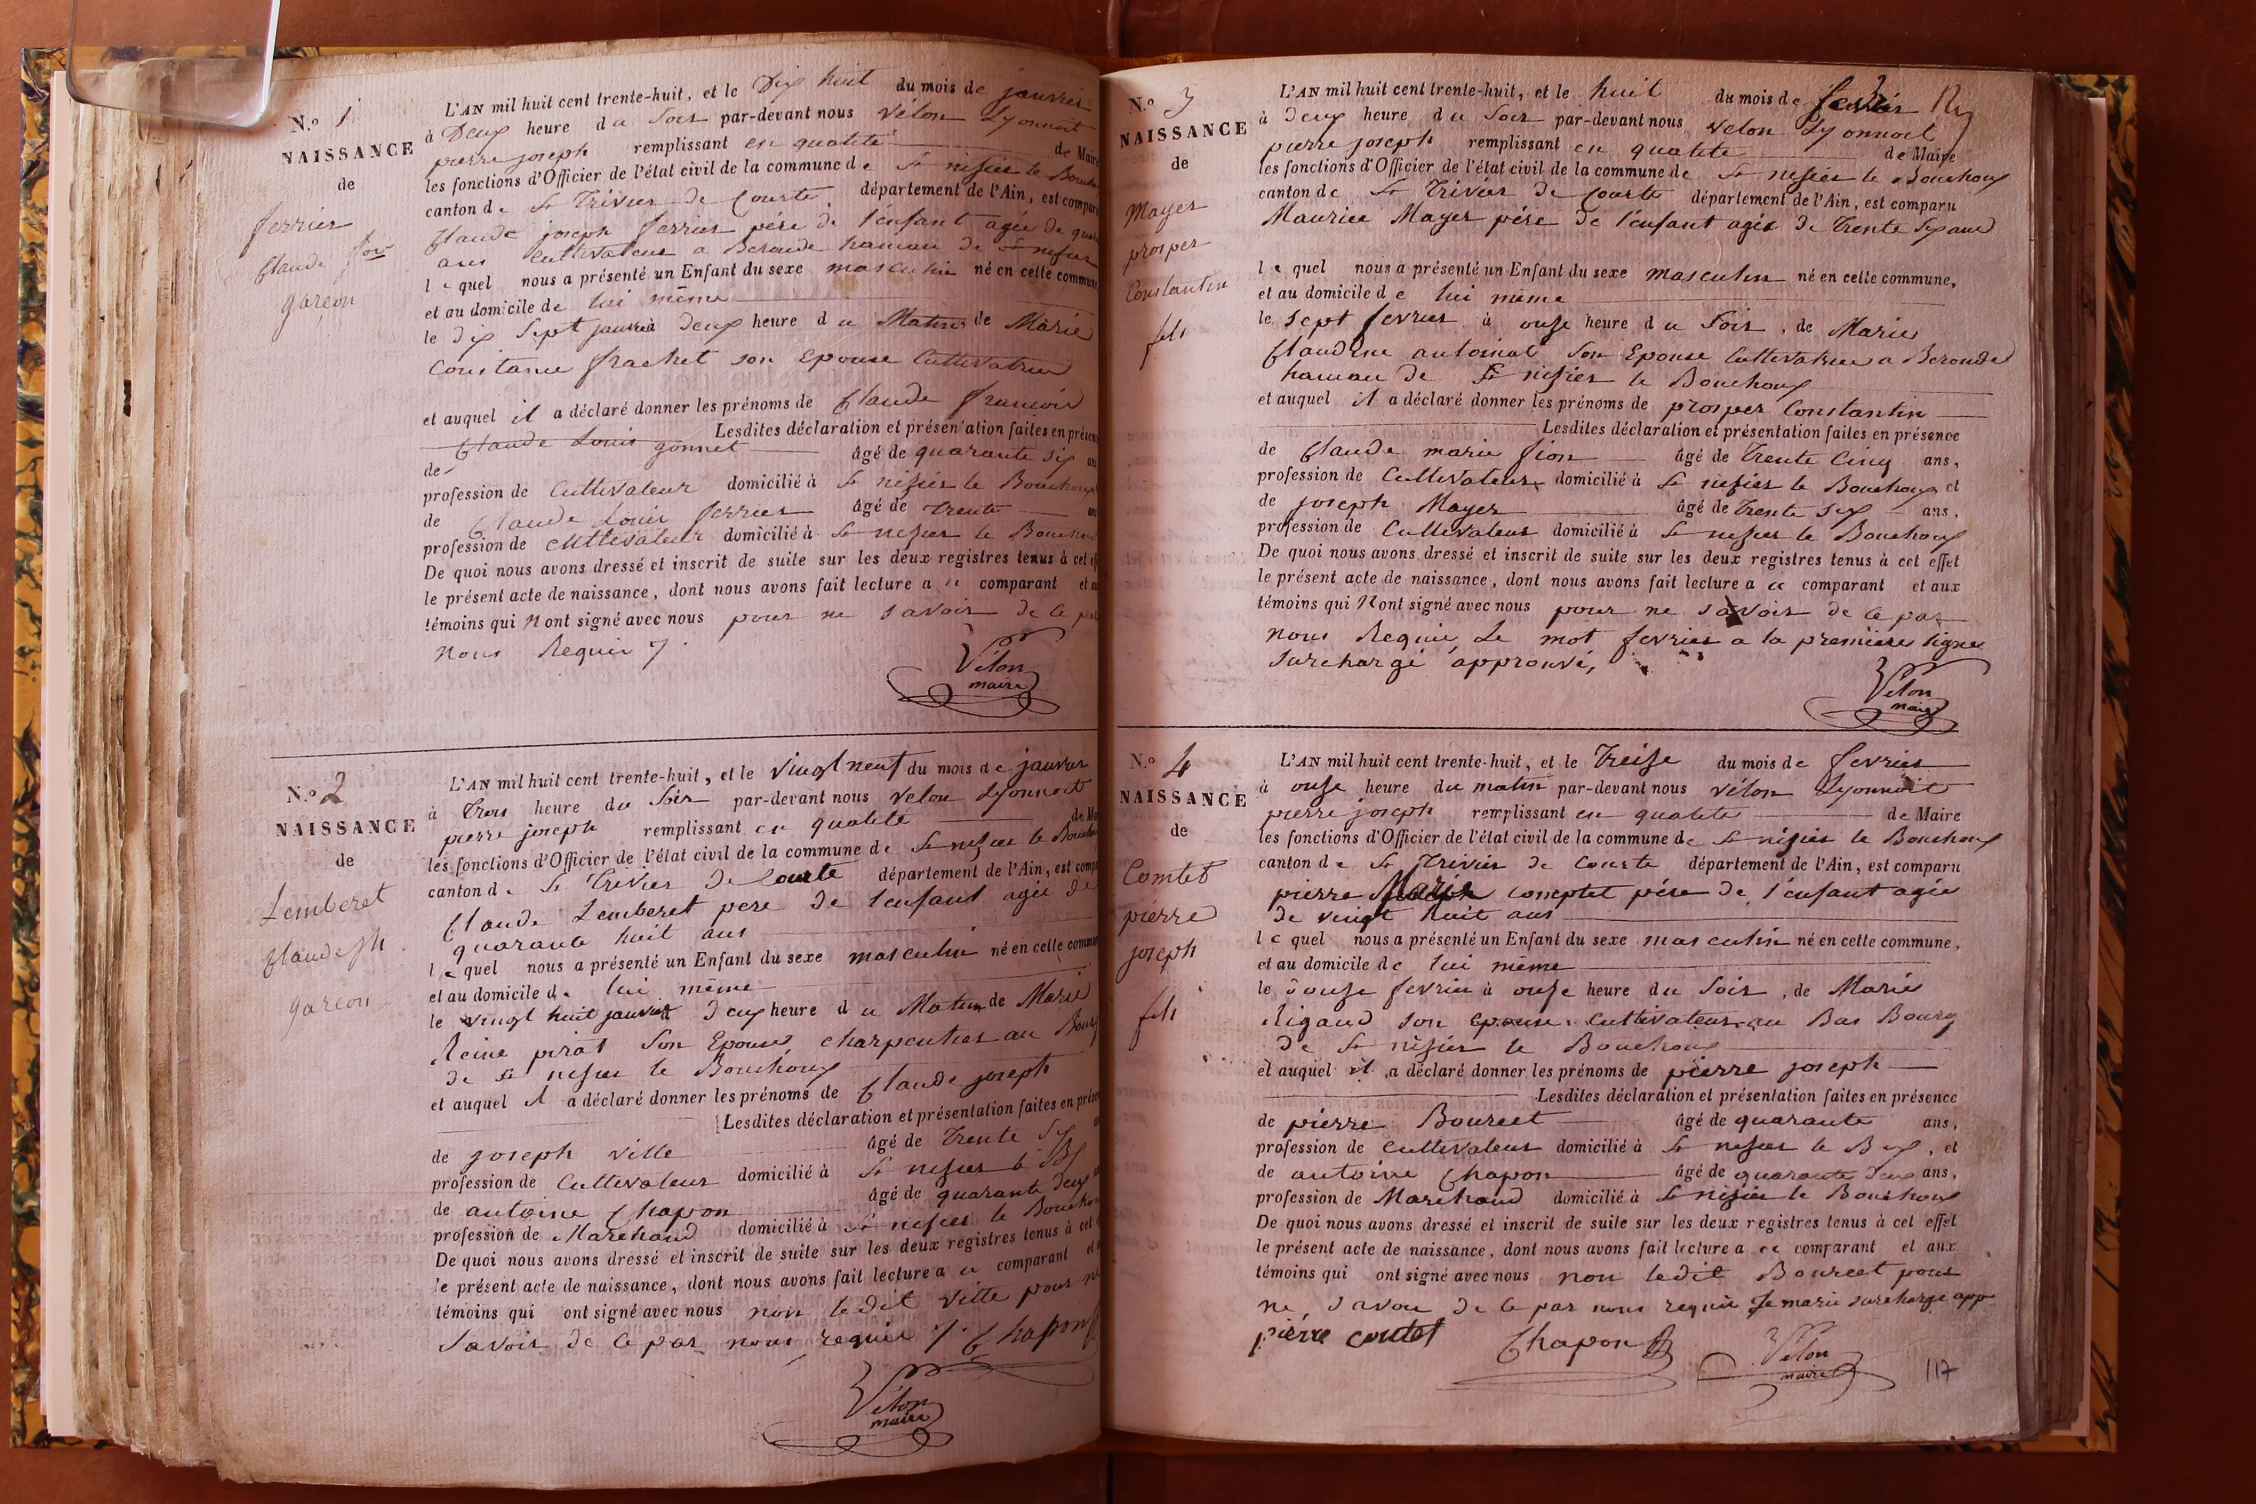 N.o 1
NAISSANCE
de
ferrier
Claude fois
garcon
L'AN mil huit cent trente-huit, et le Dix huit du mois de janvier
à Deux heure du Soir par-devant nous vélon Lyonnoit
pierre joseph remplissant en qualité de Maire
les fonctions d'Officier de l'état civil de la commune de St nisier le Bouch
canton de St Trivier de Courte département de l'Ain, est comparu
Claude joseph ferrier pére de l'enfant agée de quar
ans cultivateur a Beronde hamau de St nisier
le quel nous a présenté un Enfant du sexe masculin né en cette commune
et au domicile de lui même
le dix Sept janvier à deux heure du Matin de Marie
Constance frachet son Epouse Cultivatrice
et auquel il a déclaré donner les prénoms de Claude francois
Lesdites déclaration et présentation faites en présen
de Claude Louis gonnet âgé de quarante six ans
profession de Cultivateur domicilié à St nisier le Bouchoux
de Claude Louis ferrier âgé de trente
profession de cultivateur domicilié à St nisier le Bouchou
De quoi nous avons dressé et inscrit de suite sur les deux registres tenus à cet ef
le présent acte de naissance, dont nous avons fait lecture a ce comparant et a
témoins qui N ont signé avec nous pour ne savoir de ce par
nous Requis
Vélon
maire
N.o 2
NAISSANCE
de
Lemberet
Claude jh
garcon
L'AN mil huit cent trente-huit, et le vingt neuf du mois de janvier
à trois heure du Soir par-devant nous velon Lyonnoit
pierre joseph remplissant en qualité de Ma
les fonctions d'Officier de l'état civil de la commune de St nisier le Bouch
canton de St Trivier de Courte département de l'Ain, est comp
Claude Lemberet pere de l'enfant agée de
quarante huit ans
le quel nous a présenté un Enfant du sexe masculin né en cette commun
et au domicile de lui même
le vingt huit janvier à deux heure du Matin de Marie
Reine pirat Son Epouse charpentier au Bourg
de St nisier le Bouchoux
et auquel il a déclaré donner les prénoms de Claude joseph
Lesdites déclaration et présentation faites en prése
de joseph ville âgé de trente six
profession de Cultivateur domicilié à St nisier le Bx
de antoine Chapon âgé de quarante deux
profession de Marchand domicilié à St nisier le Bouchou
De quoi nous avons dressé et inscrit de suite sur les deux registres tenus à cet
le présent acte de naissance, dont nous avons fait lecture a ce comparant et
témoins qui ont signé avec nous non ledit ville pour ne
Savoir de ce par nous requis Chapon
Vélon
maire
N.o 3
NAISSANCE
de
Mayer
prosper
Constantin
fils
L'AN mil huit cent trente-huit, et le huit du mois de fevrier
à deux heure du Soir par-devant nous velon Lyonnoit
pierre joseph remplissant en qualité de Maire
les fonctions d'Officier de l'état civil de la commune de St nisier le Bouchoux
canton de St Trivier de Courte département de l'Ain, est comparu
Maurice Mayer pére de l'enfant agée de trente six ans
le quel nous a présenté un Enfant du sexe masculin né en cette commune,
et au domicile de lui même
le sept fevrier à onze heure du Soir, de Marie
Claudine antoinat Son Epouse Cultivatrice a Beronde
hamau de St nisier le Bouchoux
et auquel il a déclaré donner les prénoms de prosper Constantin
Lesdites déclaration et présentation faites en présence
de Claude marie fion âgé de trente cinq ans,
profession de Cultivateur domicilié à St nisier le Bouchoux et
de joseph Mayer âgé de trente six ans,
profession de Cultivateur domicilié à St nisier le Bouchoux
De quoi nous avons dressé et inscrit de suite sur les deux registres tenus à cet effet
le présent acte de naissance, dont nous avons fait lecture a ce comparant et aux
témoins qui N ont signé avec nous pour ne savoir de ce par
nous Requis, Le mot fevrier a la premiere ligne
surchargé approuvé,
Vélon
maire
N.o 4
NAISSANCE
de
Comtet
pierre
joseph
fils
L'AN mil huit cent trente-huit, et le treize du mois de fevrier
à onze heure du matin par-devant nous vélon Lyonnoit
pierre joseph remplissant en qualité de Maire
les fonctions d'Officier de l'état civil de la commune de St nisier le Bouchoux
canton de St Trivier de Courte département de l'Ain, est comparu
pierre Marie comptet pére de l'enfant agée
de vingt huit ans
le quel nous a présenté un Enfant du sexe masculin né en cette commune,
et au domicile de lui même
le douze fevrier à onze heure du Soir, de Marie
Rigaud son epouse cultivateur au Bas Bourg
de St nisier le Bouchoux
et auquel il a déclaré donner les prénoms de pierre joseph
Lesdites déclaration et présentation faites en présence
de pierre Bourcet âgé de quarante ans,
profession de cultivateur domicilié à St nisier le Bx, et
de antoine Chapon âgé de quarante deux ans,
profession de Marchand domicilié à St nisier le Bouchoux
De quoi nous avons dressé et inscrit de suite sur les deux registres tenus à cet effet
le présent acte de naissance, dont nous avons fait lecture a ce comparant et aux
témoins qui ont signé avec nous non ledit Bourcet pour
ne savoir de ce par nous requis Le marie surcharge app
pierre contet Chapon Vélon
maire
117